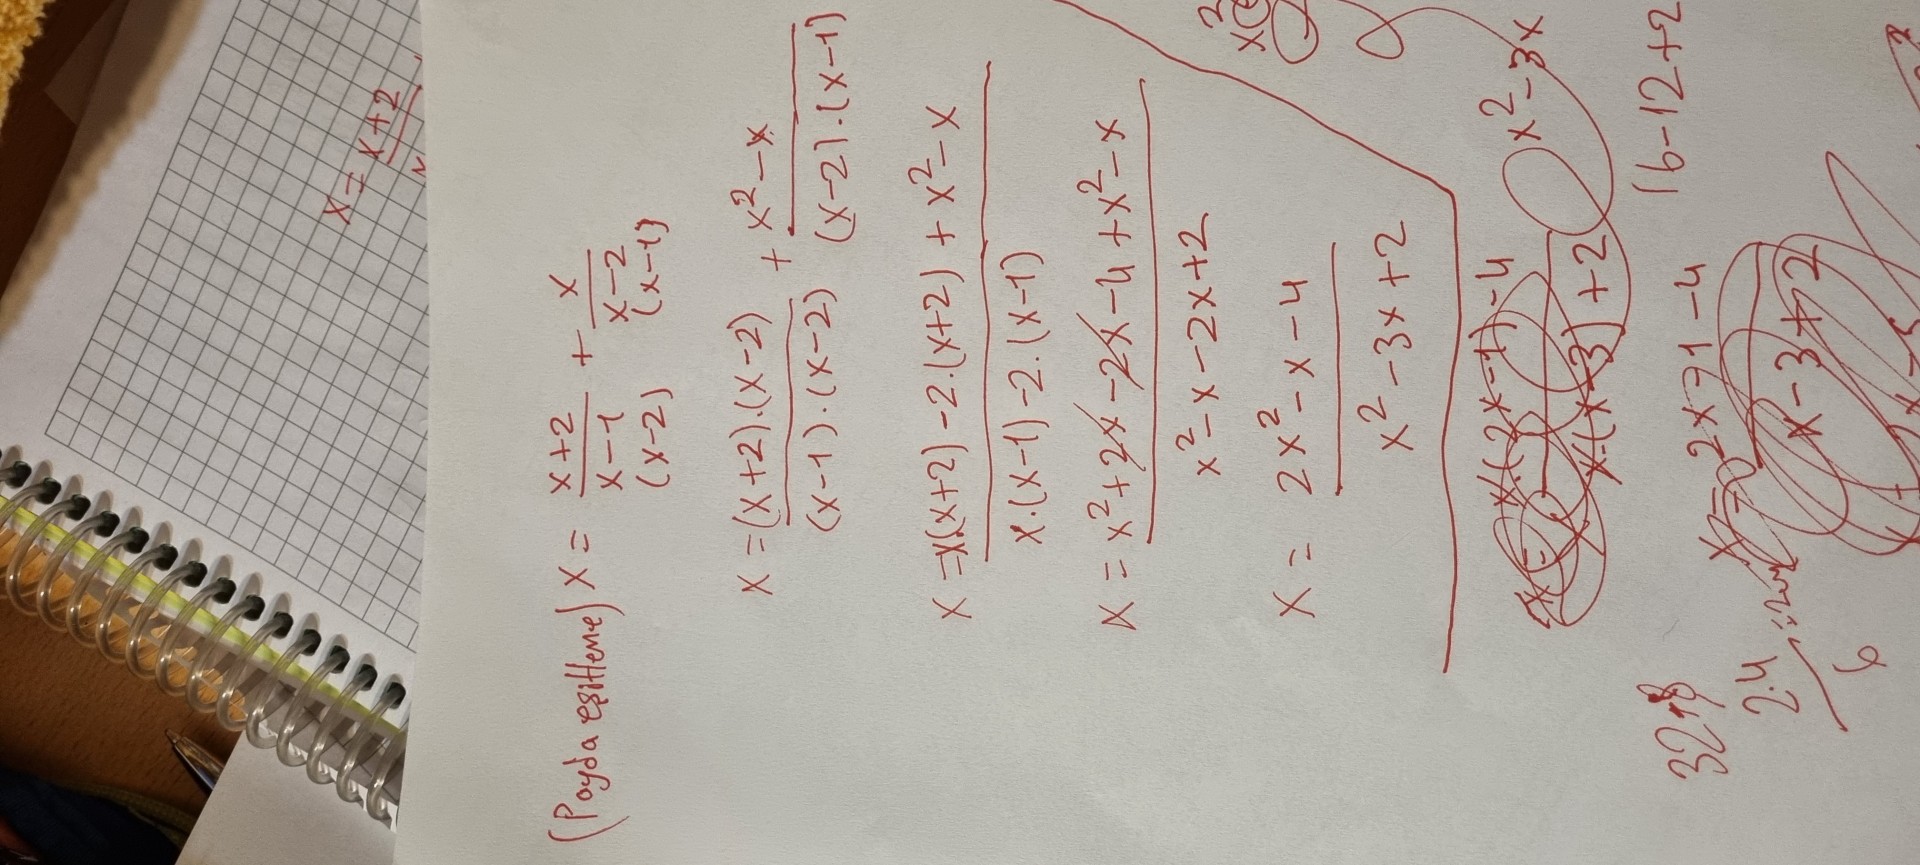 x = x+2
(Payda eşitleme) x = x+2/x-1 + x/x-2
(x-2) (x-1)
x = (x+2).(x-2)/(x-1).(x-2) + x²-x/(x-2).(x-1)
x = x(x+2)-2.(x+2)+x²-x
x.(x-1)-2.(x-1)
x = x²+2x-2x-4+x²-x
x²-x-2x+2
x = 2x²-x-4
x²-3x+2
x.(2x-1)-4
x.(x-3)+2
x²-3x
16-12+2
2x-1-4
x-3+2
32
2.4
6